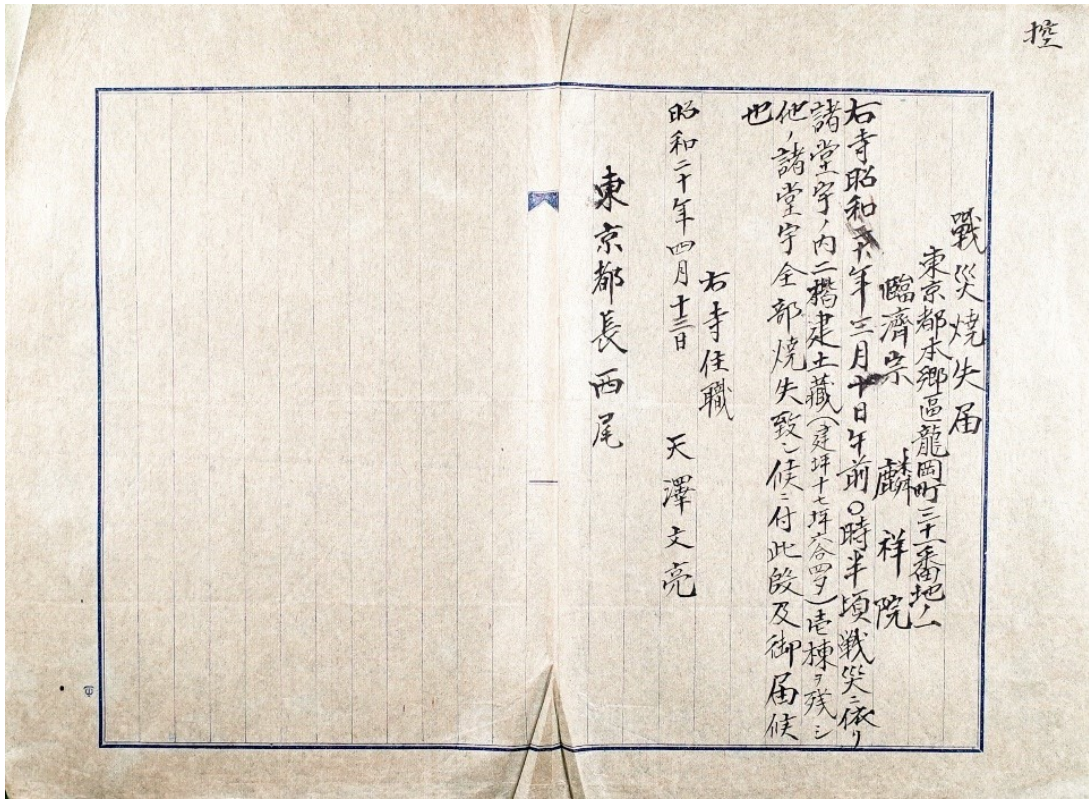 控
戰災燒失届
東京都本郷區龍岡町三十一番地ノ一
臨濟宗 麟祥院
右寺昭和二十年三月十日午前〇時半頃戦災ニ依リ
諸堂宇ノ内二階建土藏(建坪十七坪六合四夕)壱棟ヲ残シ
他ノ諸堂宇全部焼失致シ候ニ付此段及御届候
也
右寺住職
昭和二十年四月十三日 天澤文亮
東京都長西尾